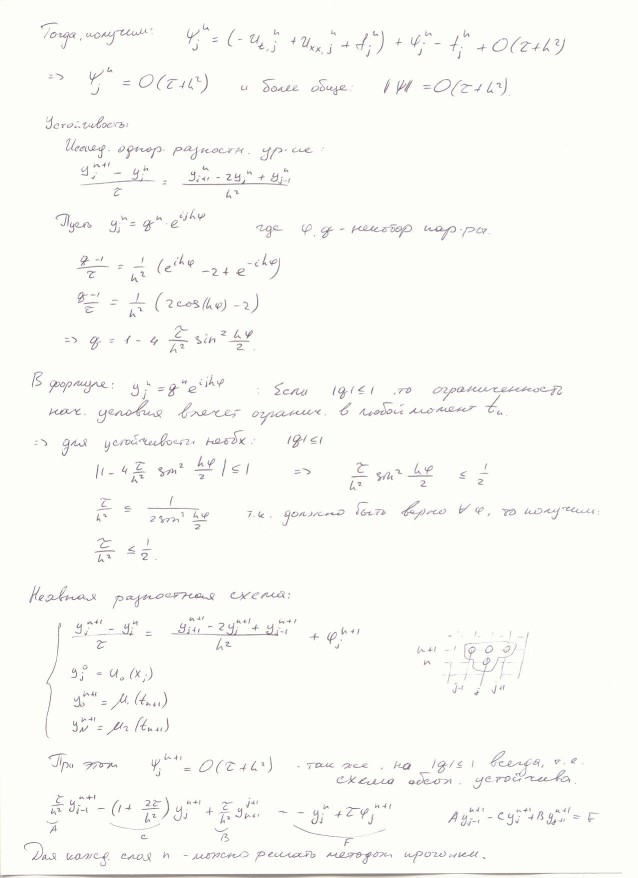 Тогда, получим: ψ_j^n = (-u_{t,j}^n + u_{xx,j}^n + f_j^n) + φ_j^n - f_j^n + O(τ+h²)
=> ψ_j^n = O(τ+h²) и более общее: ||ψ|| = O(τ+h²).
Устойчивость:
Исслед. однор. разностн. ур-ие:
(y_j^{n+1} - y_j^n)/τ = (y_{j+1}^n - 2y_j^n + y_{j-1}^n)/h²
Пусть y_j^n = q^n · e^{ijhφ} где φ, q - некотор пар-ры.
(q-1)/τ = 1/h² (e^{ihφ} - 2 + e^{-ihφ})
(q-1)/τ = 1/h² (2cos(hφ) - 2)
=> q = 1 - 4 τ/h² sin² hφ/2.
В формуле: y_j^n = q^n e^{ijhφ} : Если |q| ≤ 1, то ограниченность
нач. условия влечет огранич. в любой момент t_n.
=> для устойчивости необх: |q| ≤ 1
|1 - 4 τ/h² sin² hφ/2| ≤ 1 => τ/h² sin² hφ/2 ≤ 1/2
τ/h² ≤ 1/(2sin² hφ/2) т.к. должно быть верно ∀ φ, то получим:
τ/h² ≤ 1/2.
Неявная разностная схема:
(y_j^{n+1} - y_j^n)/τ = (y_{j+1}^{n+1} - 2y_j^{n+1} + y_{j-1}^{n+1})/h² + φ_j^{n+1}
y_j^0 = u_0(x_j)
y_0^{n+1} = μ_1(t_{n+1})
y_N^{n+1} = μ_2(t_{n+1})
n+1
n
j-1 j j+1
При этом ψ_j^{n+1} = O(τ+h²) - так же, но |q| ≤ 1 всегда, т.е.
схема абсол. устойчива.
τ/h² y_{j-1}^{n+1} - (1 + 2τ/h²) y_j^{n+1} + τ/h² y_{n+1}^{j+1} = - y_j^n + τφ_j^{n+1} Ay_{j-1}^{n+1} - Cy_j^{n+1} + By_{j+1}^{n+1} = F
A C B F
Для кажд. слоя n - можно решать методом прогонки.